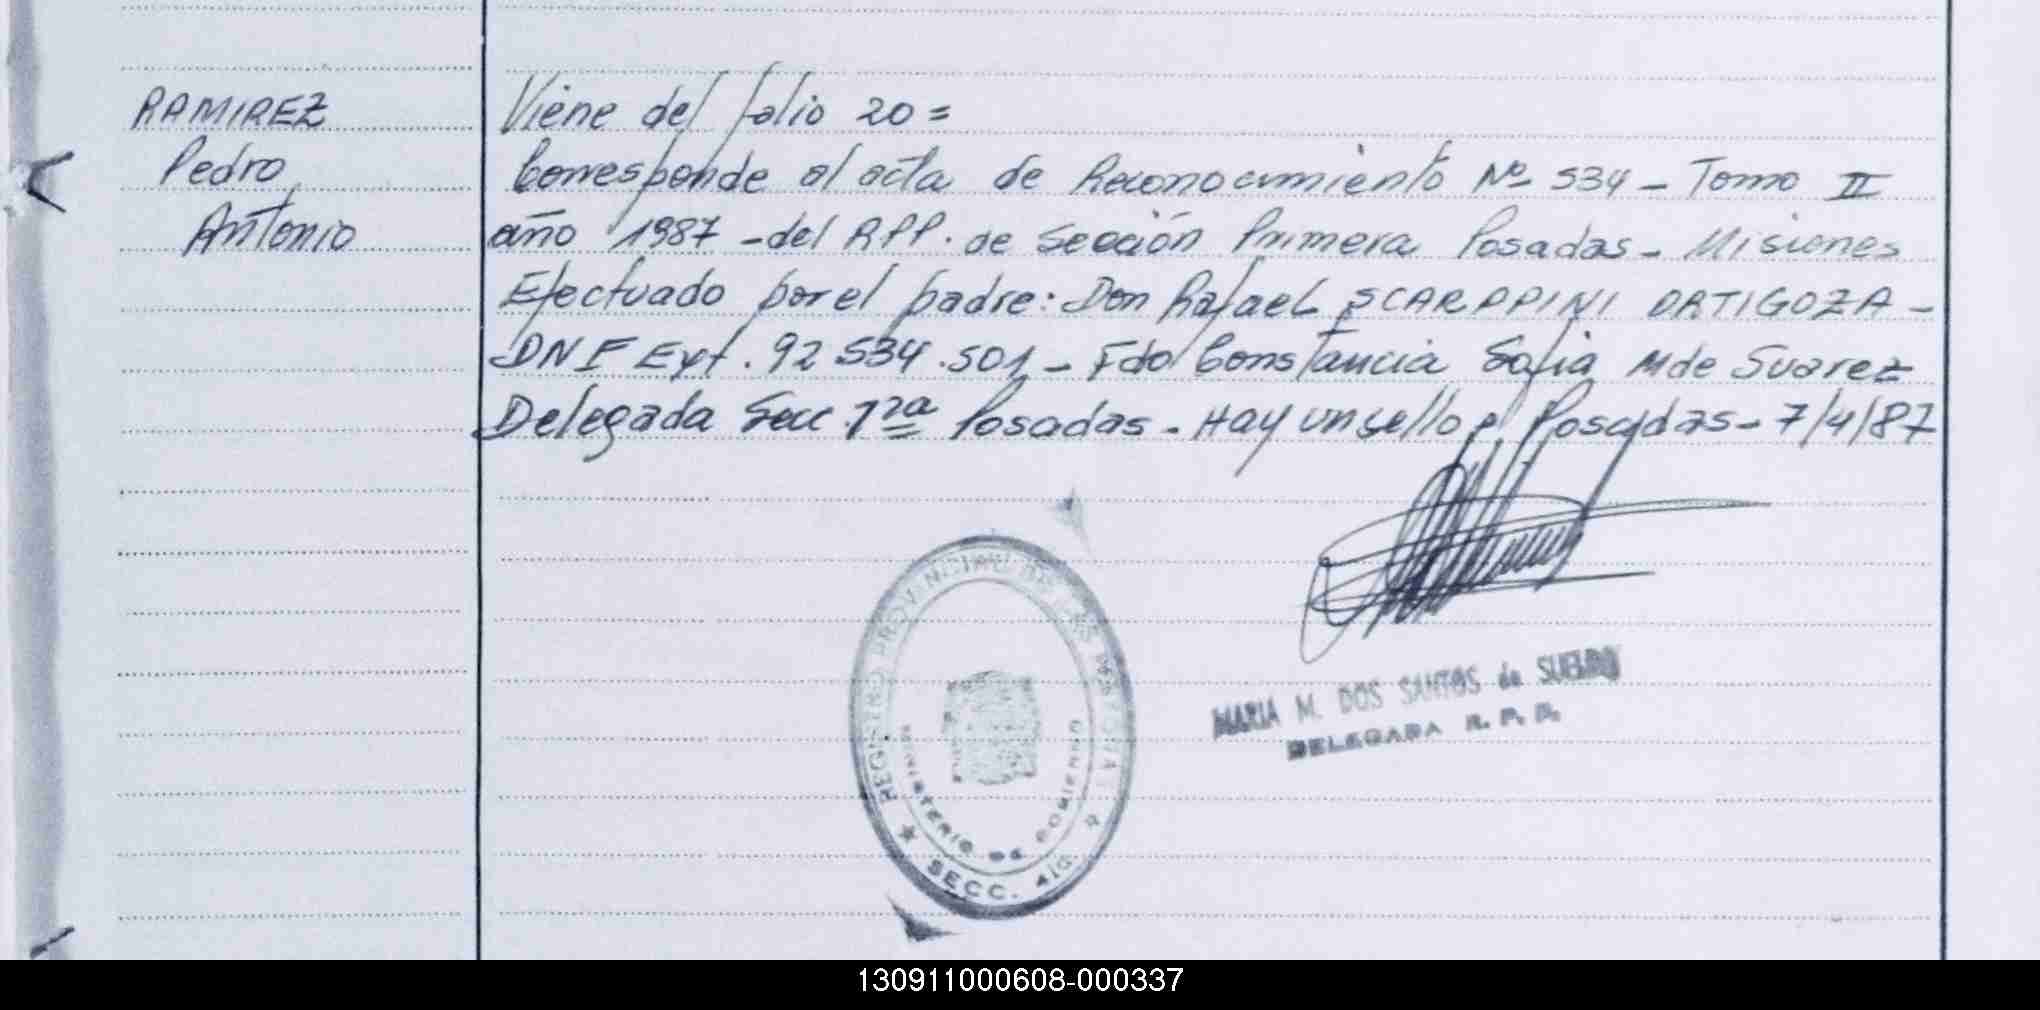 RAMIREZ
Pedro
Antonio
Viene del folio 20=
Corresponde al acta de Reconocimiento Nº 534 - Tomo II
año 1987 - del RPP. de Sección Primera Posadas - Misiones
Efectuado por el padre: Don Rafael SCARPPINI ORTIGOZA -
DNI Ext. 92 534.501 - Fdo Constancia Sofia M de Suarez
Delegada Secc. 1ra Posadas - Hay un sello Posadas - 7/4/87
REGISTRO PROVINCIAL DE LAS PERSONAS
MINISTERIO DE GOBIERNO
SECC. 4ta
MARIA M. DOS SANTOS de SUELDO
DELEGADA R. P. P.
130911000608-000337